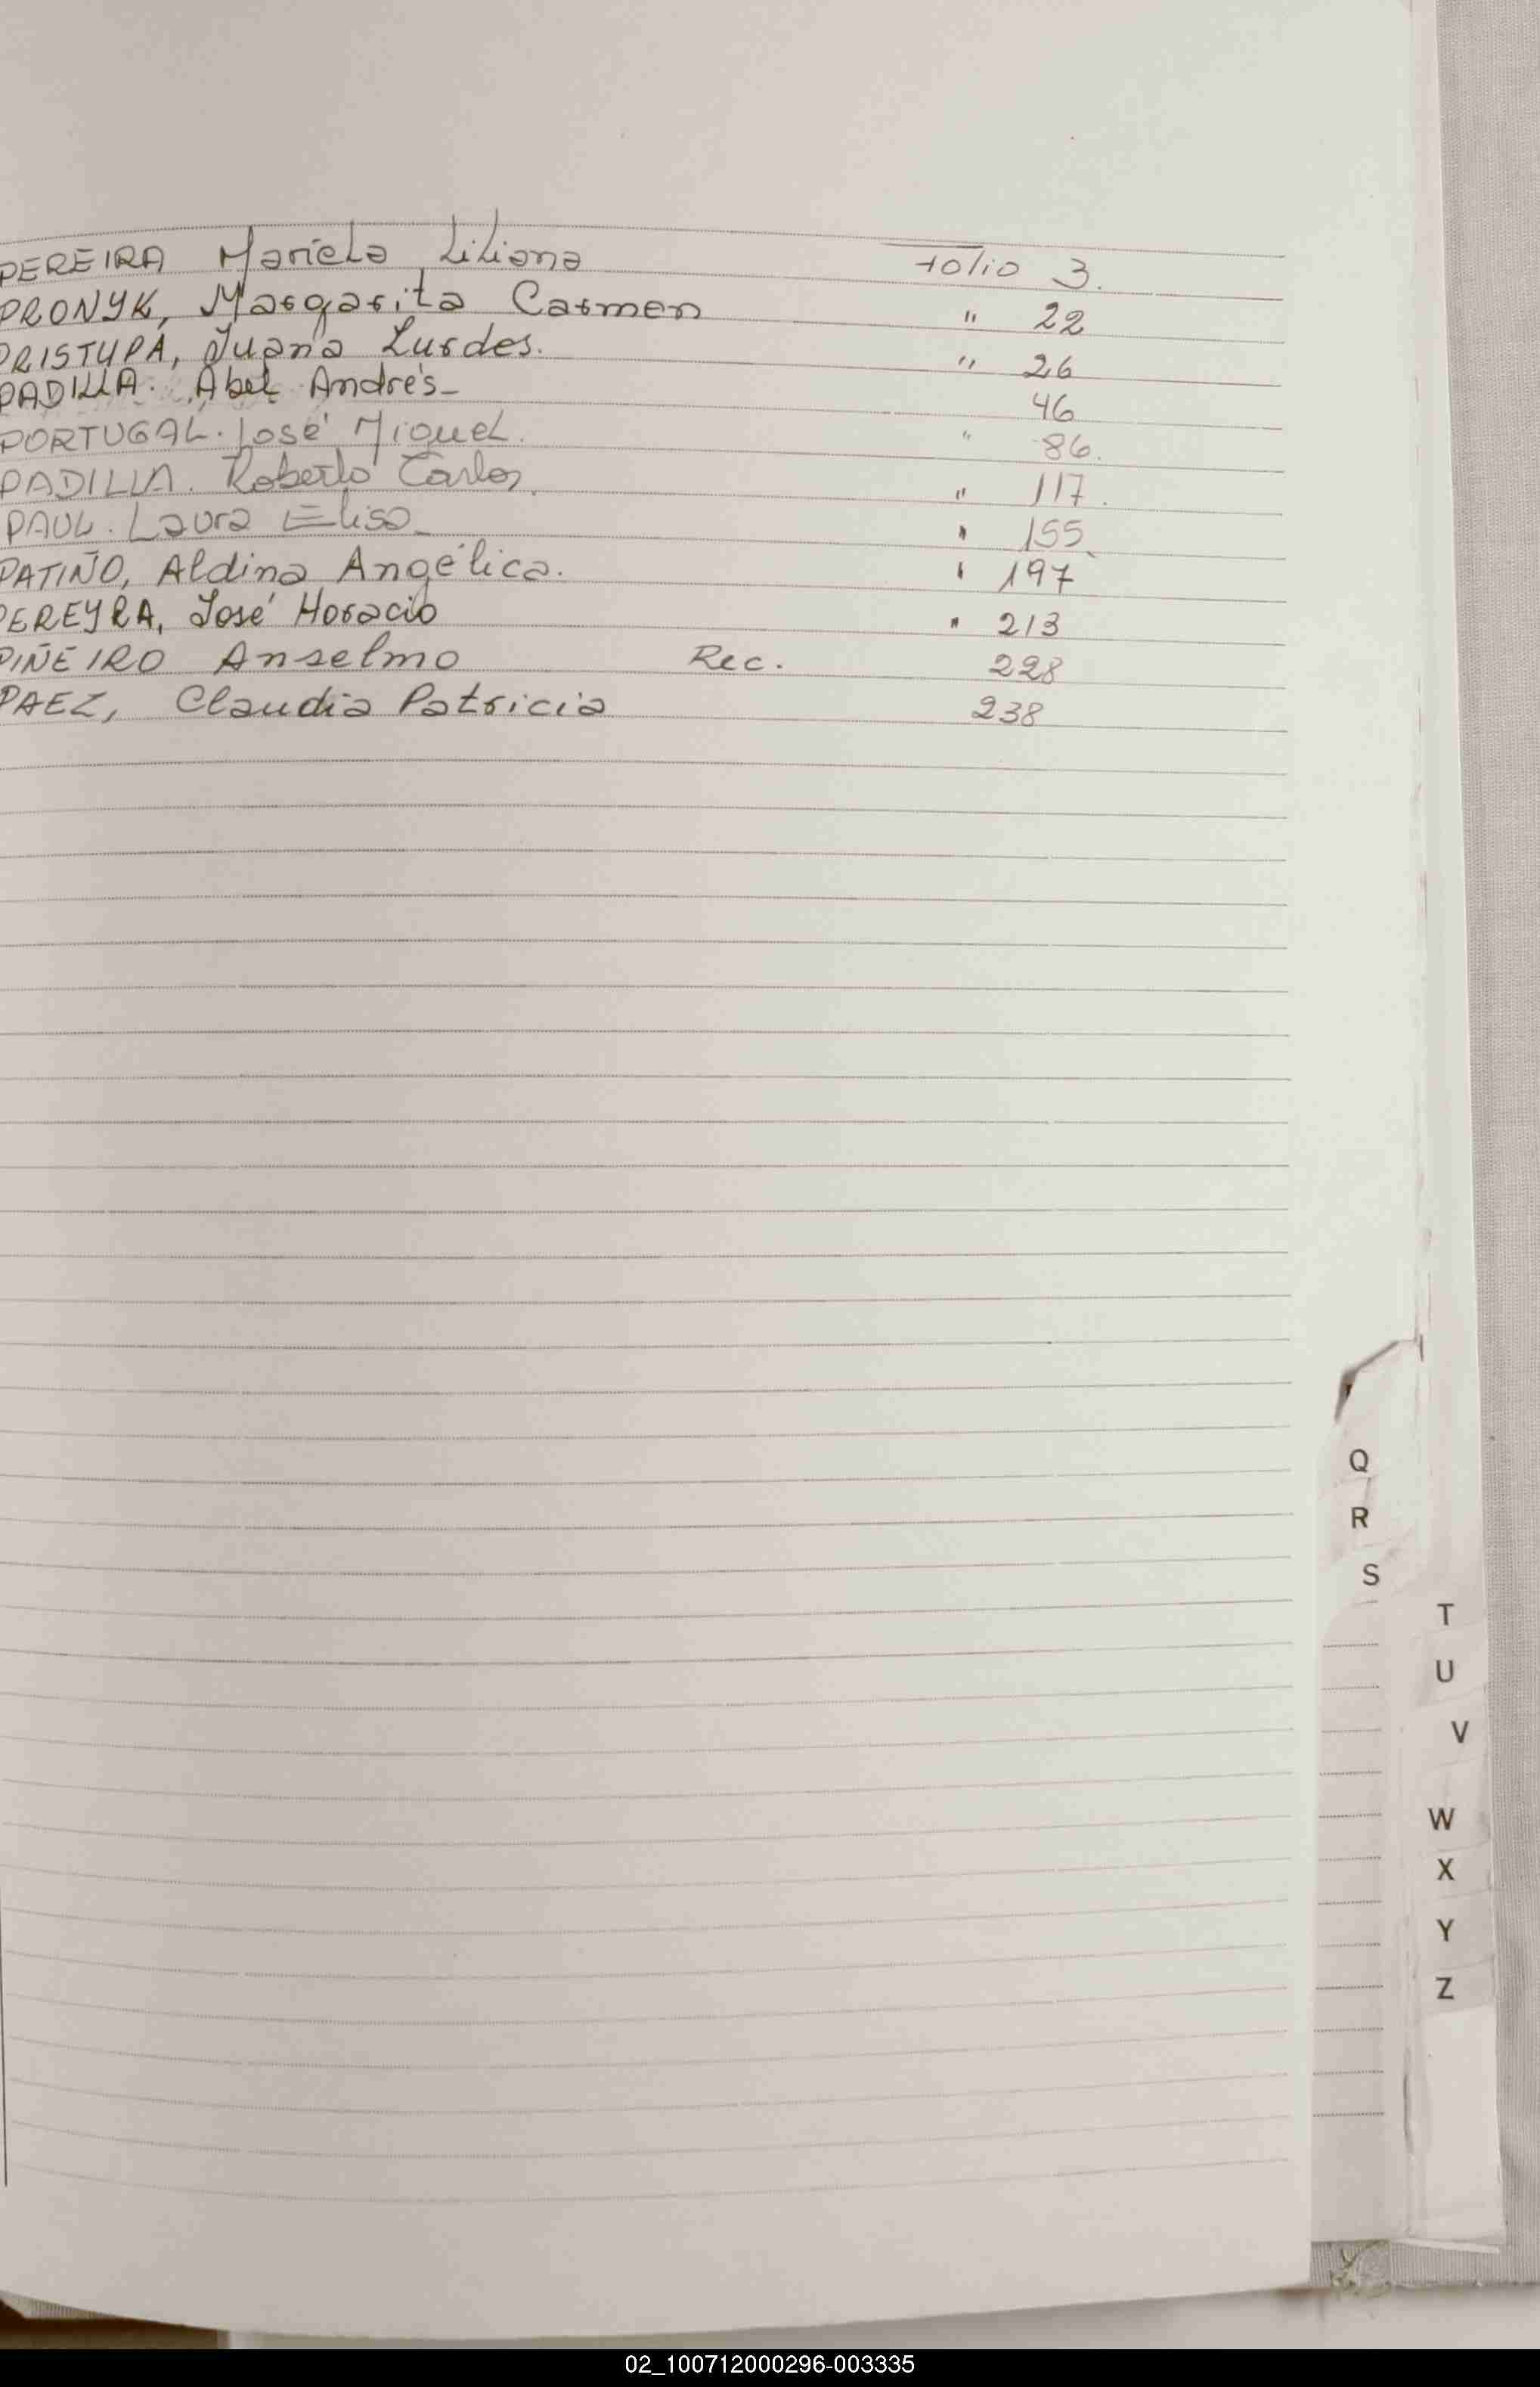 PEREIRA Mariela Liliana Folio 3.
PRONYK, Margarita Carmen " 22
PRISTUPA, Juana Lurdes. " 26
PADILLA. Abel Andrés_ 46
PORTUGAL. José Miguel. " 86.
PADILLA. Roberto Carlos. " 117.
PAUL. Laura Elisa_ " 155
PATIÑO, Aldina Angélica. " 197
PEREYRA, José Horacio " 213
PIÑEIRO Anselmo Rec. 228
PAEZ, Claudia Patricia 238
Q
R
S
T
U
V
W
X
Y
Z
02_100712000296-003335